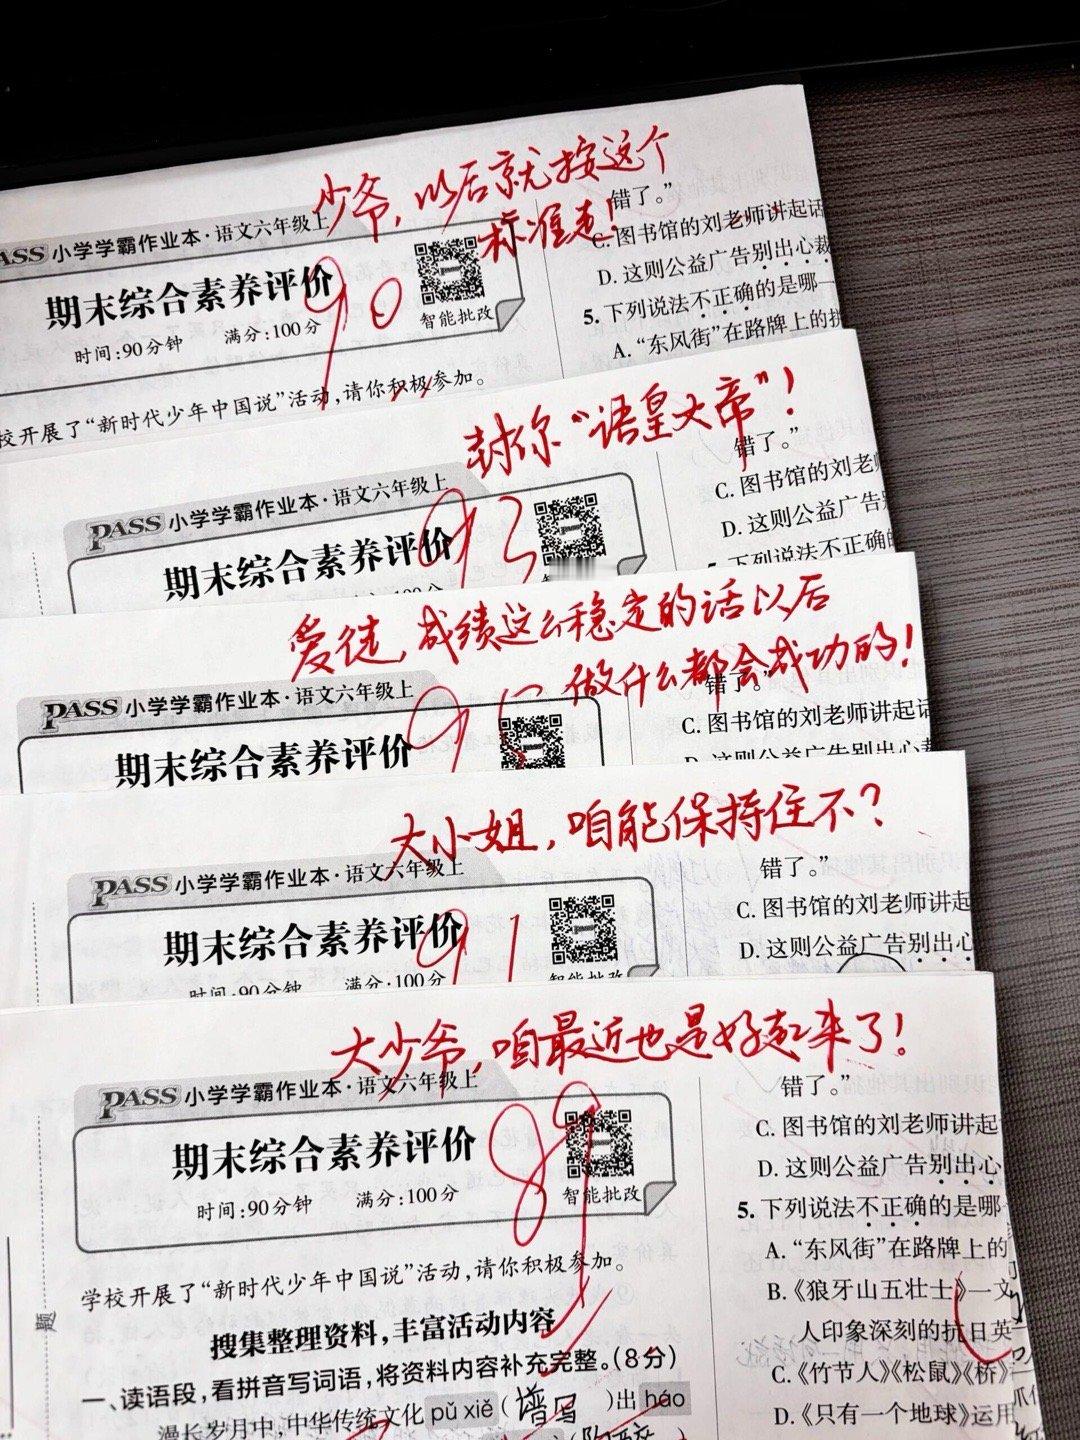 少爷，以后就按这个
标准走！
PASS 小学学霸作业本·语文六年级上
期末综合素养评价
90
时间：90分钟 满分：100分
智能批改
校开展了“新时代少年中国说”活动，请你积极参加。
错了。”
C. 图书馆的刘老师讲起话
D. 这则公益广告别出心裁
5. 下列说法不正确的是哪一
A. “东风街”在路牌上的
封你“语皇大帝”！
PASS 小学学霸作业本·语文六年级上
期末综合素养评价
93
错了。”
C. 图书馆的刘老师
D. 这则公益广告
下列说法不正确的
爱徒，成绩这么稳定的话以后
做什么都会成功的！
PASS 小学学霸作业本·语文六年级上
期末综合素养评价
错了。”
C. 图书馆的刘老师讲起话
D. 这则公益广告别出心裁
大小姐，咱能保持住不？
PASS 小学学霸作业本·语文六年级上
期末综合素养评价
91
时间：90分钟 满分：100分
智能批改
错了。”
C. 图书馆的刘老师讲起
D. 这则公益广告别出心
大少爷，咱最近也是好起来了！
PASS 小学学霸作业本·语文六年级上
期末综合素养评价
89
时间：90分钟 满分：100分
智能批改
学校开展了“新时代少年中国说”活动，请你积极参加。
搜集整理资料，丰富活动内容
一、读语段，看拼音写词语，将资料内容补充完整。（8分）
漫长岁月中，中华传统文化 pǔ xiě（谱写）出 háo
题
错了。”
C. 图书馆的刘老师讲起
D. 这则公益广告别出心
5. 下列说法不正确的是哪
A. “东风街”在路牌上的
B.《狼牙山五壮士》一文
人印象深刻的抗日英
C.《竹节人》《松鼠》《桥》
D.《只有一个地球》运用